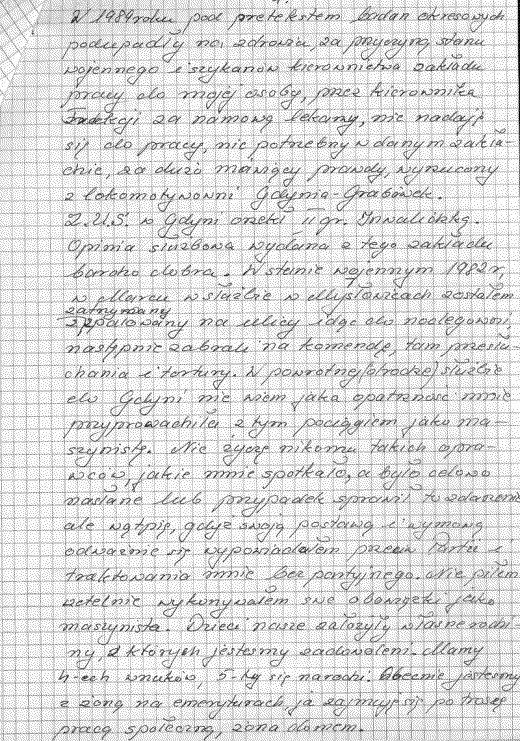 W 1984 roku pod pretekstem badań okresowych
podupadły na zdrowiu, za przyczyną stanu
wojennego i szykanów kierownictwa zakładu
pracy do mojej osoby, przez kierownika
Trakcji za namową lekarzy, nie nadaję
się do pracy, nie potrzebny w danym zakła-
dzie, za dużo mówiący prawdy, wyrzucony
z lokomotywowni Gdynia-Grabówek.
Z.U.S. w Gdyni orzekł II gr. Inwalidzką.
Opinia służbowa wydana z tego zakładu
bardzo dobra. W stanie wojennym 1982 r,
w Marcu w służbie w Mysłowicach zostałem
zatrzymany
spałowany na ulicy idąc do noclegowni,
następnie zabrali na komendę, tam przesłu-
chania i tortury. W powrotnej /drodze/ służbie
do Gdyni nie wiem jaka opatrzność mnie
przyprowadziła z tym pociągiem jako ma-
szynistę. Nie życzę nikomu takich opra-
wców, jakie mnie spotkało, a było celowo
nasłane lub przypadek sprawił to zdarzenie
ale wątpię, gdyż swoją postawą i wymową
odważnie się wypowiadałem przeciw Partii i
traktowania mnie bezpartyjnego. Nie piłem
rzetelnie wykonywałem swe obowiązki jako
maszynista. Dzieci nasze założyły własne rodzi-
ny, z których jesteśmy zadowoleni. Mamy
4-ech wnuków, 5-ty się narodzi. Obecnie jesteśmy
z żoną na emeryturach, ja zajmuję się po trosze
pracą społeczną, żona domem.